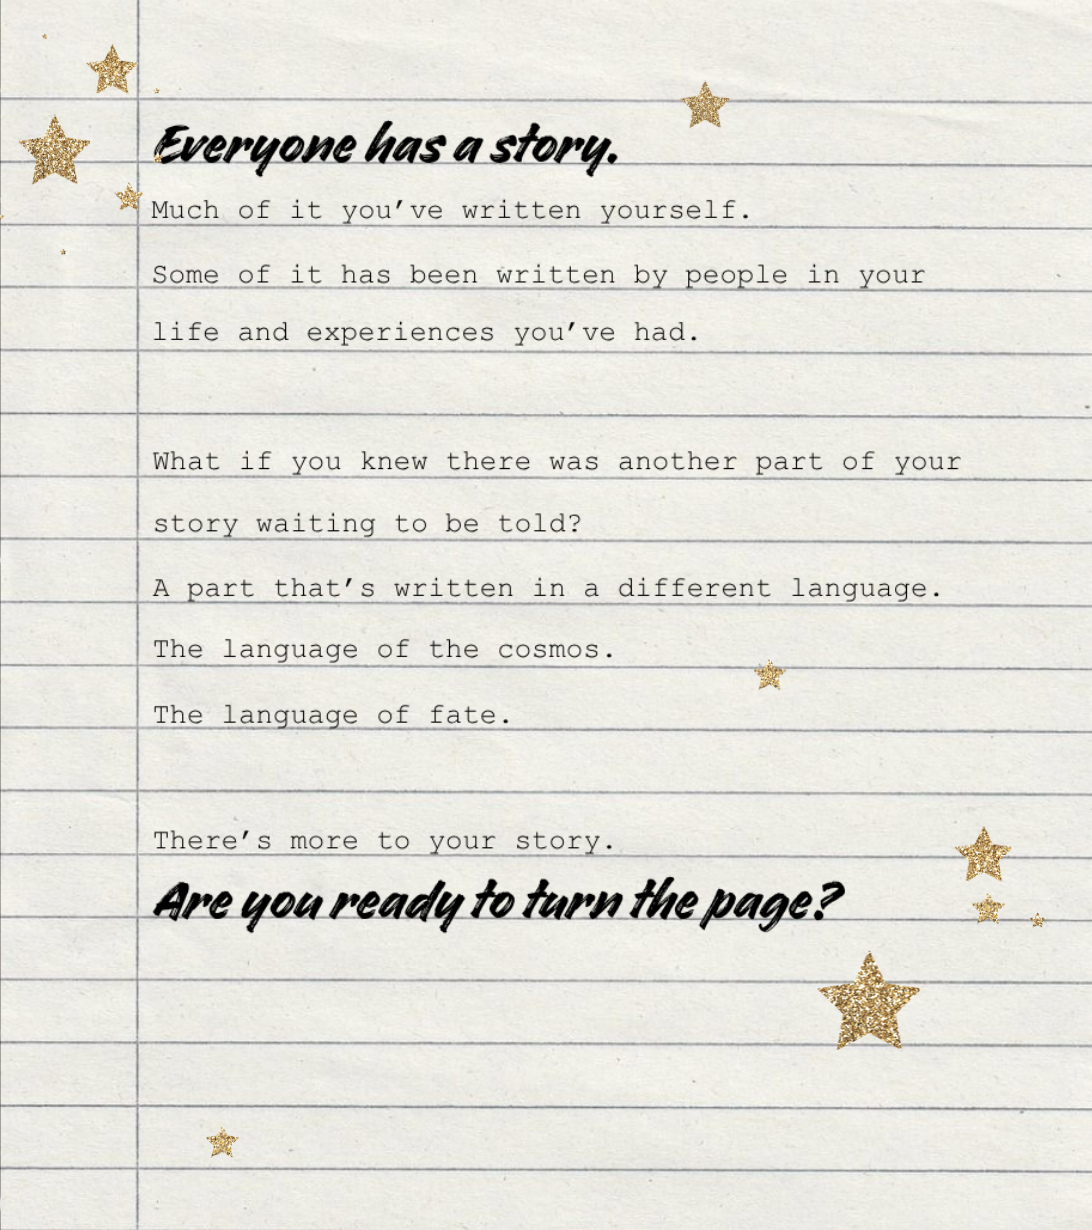 Everyone has a story.
Much of it you’ve written yourself.
Some of it has been written by people in your
life and experiences you’ve had.
What if you knew there was another part of your
story waiting to be told?
A part that’s written in a different language.
The language of the cosmos.
The language of fate.
There’s more to your story.
Are you ready to turn the page?